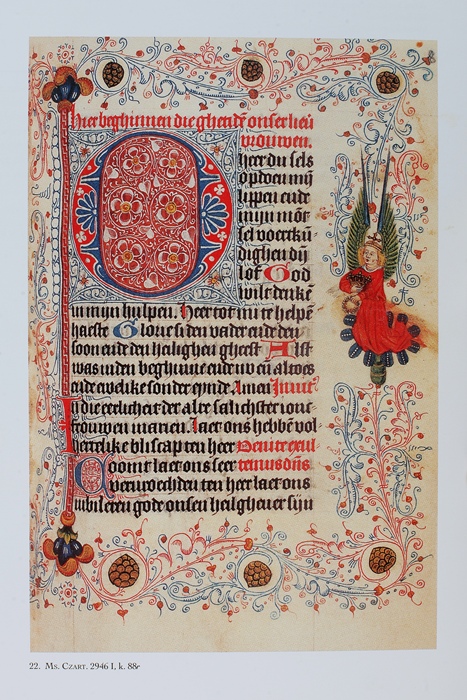 Hier beghinnen die ghetidē onser lieū
vrouwen.
Heer du sels
opdoen mijn
lippen ende
mijn mōt
sel voertkū
dighen dij
lof God
wilt denkē
in mijn hulpen. Heer tot mi te helpē
haeste Glorie si den vader ende den
soon ende den heilighen gheest Alst
was inden beghinne ende nv en altoes
ende ewelike sonder eynde. Amen
die eerlicheit der alre salichster ionc
frouwen marien. Laet ons hebbē vol
herrelike bliscap ten heer Venite exul
Coomt laet ons seer temus dn̄o
veruroechden ten heer laet ons
iubileren gode onsen heilghever sijn
22. Ms. Czart. 2946 I, k. 88r